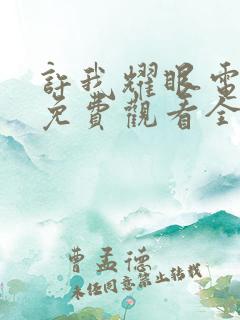 許我耀眼電
免費觀看全
曹孟德
未經同意禁止轉載